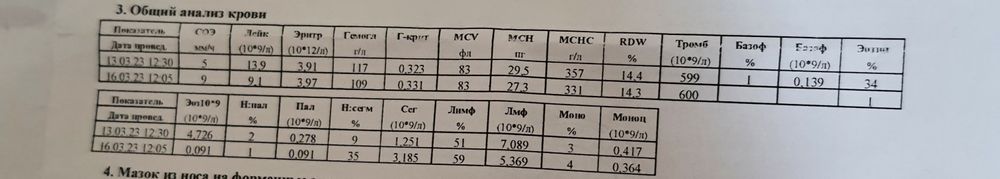 3. Общий анализ крови
Показатель СОЭ Лейк Эритр Гемогл Г-крит MCV MCH MCHC RDW Тромб Базоф Базоф Эозин
Дата провед. мм/ч (10*9/л) (10*12/л) г/л фл пг г/л % (10*9/л) % (10*9/л) %
13.03.23 12:30 5 13,9 3,91 117 0,323 83 29,5 357 14,4 599 1 0,139 34
16.03.23 12:05 9 9,1 3,97 109 0,331 83 27,3 331 14,3 600 1
Показатель Эоз10*9 Н:пал Пал Н:сегм Сег Лимф Лмф Моно Моноц
Дата провед. (10*9/л) % (10*9/л) % (10*9/л) % (10*9/л) % (10*9/л)
13.03.23 12:30 4,726 2 0,278 9 1,251 51 7,089 3 0,417
16.03.23 12:05 0,091 1 0,091 35 3,185 59 5,369 4 0,364
4. Мазок из носа на